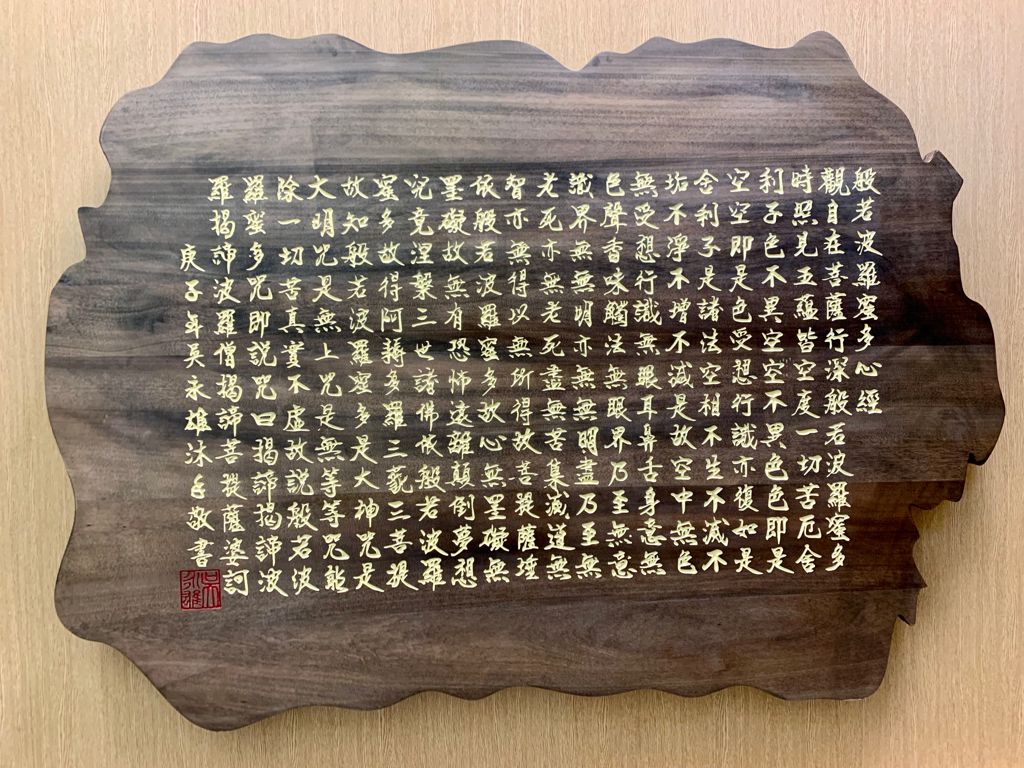 般若波羅蜜多心經
觀自在菩薩行深般若波羅蜜多
時照見五蘊皆空度一切苦厄舍
利子色不異空空不異色色即是
空空即是色受想行識亦復如是
舍利子是諸法空相不生不滅不
垢不淨不增不減是故空中無色
無受想行識無眼耳鼻舌身意無
色聲香味觸法無眼界乃至無意
識界無無明亦無無明盡乃至無
老死亦無老死盡無苦集滅道無
智亦無得以無所得故菩提薩埵
依般若波羅蜜多故心無罣礙無
罣礙故無有恐怖遠離顛倒夢想
究竟涅槃三世諸佛依般若波羅
蜜多故得阿耨多羅三藐三菩提
故知般若波羅蜜多是大神咒是
大明咒是無上咒是無等等咒能
除一切苦真實不虛故說般若波
羅蜜多咒即說咒曰揭諦揭諦波
羅揭諦波羅僧揭諦菩提薩婆訶
庚子年吳永雄沐手敬書
吳永雄